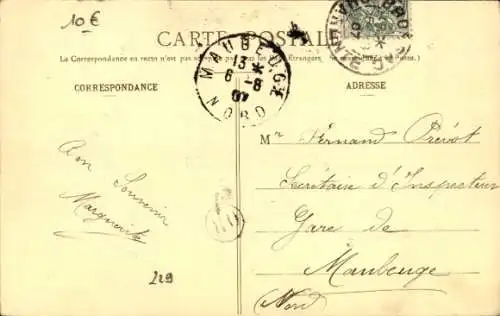 10€
CARTE POSTALE
La Correspondance au recto n'est pas
CORRESPONDANCE
ADRESSE
MAUBEUGE
13 *
6 - 8
07
NORD
Mr Fernand Prévot
Secrétaire d'Inspecteur
Gare de
Maubeuge
(Nord)
Bon Souvenir
Marguerite
229